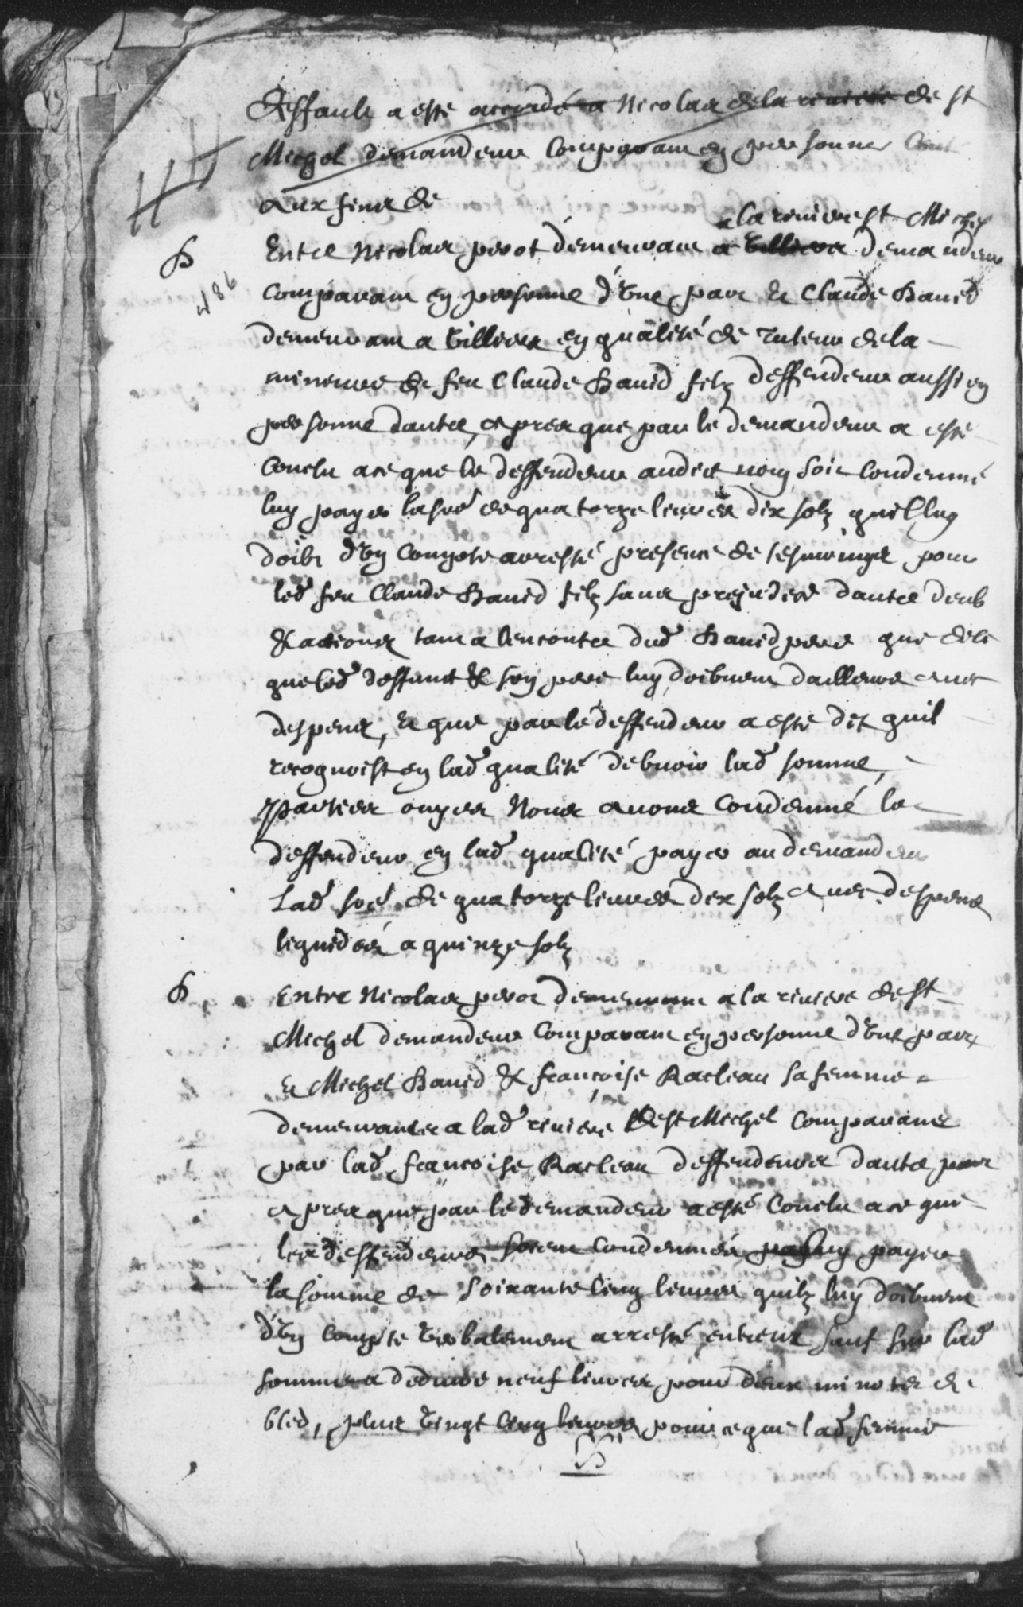 Deffault a este accordé a Nicolas de la riviere de st
Michel demandeur comparant en personne Cont
aux fins de
a la riviere st Michel
Entre Nicolas perot demeurant a Villiers demandeur
486
comparant en personne d'une part Et Claude David
demeurant a Villiers en qualité de Tuteur de la
mineure de feu Claude David filz deffendeur aussi en
personne dautre, apres que par le demandeur a esté
conclu a ce que le deffendeur audit nom soit condemné
luy payer la somē de quatorze livres dix solz quil luy
doibt d'un compte arresté presence de tesmoings pour
led feu Claude David filz sans prejudice dautre deub
& actions tant a lencontre dud David pere que de ce
que led deffunct & son pere luy doibvent dailleurs avec
despens, Et que par le deffendeur a esté dit quil
recognoist en lad qualité debvoir lad somme,
Parties ouyes Nous avons condemné le
deffendeur en lad qualité payer au demandeur
Lad somē de quatorze livres dix solz avec despens
liquidés a quinze solz
Entre Nicolas perot demeurant a la riviere de st
Michel demandeur comparant en personne d'une part
Et Michel David & françoise Racleau sa femme
demeurants a lad riviere de st Michel comparants
par lad françoise Racleau deffendeurs dautre part
apres que par le demandeur a esté conclu a ce que
les deffendeurs soient condemnés payer
la somme de soixante cinq livres quilz luy doibvent
d'un compte verbalement arresté entreux sauf sur lad
somme a deduire neuf livres pour deux minotes de
bled, plus vingt cinq livres pour ce que lad femme